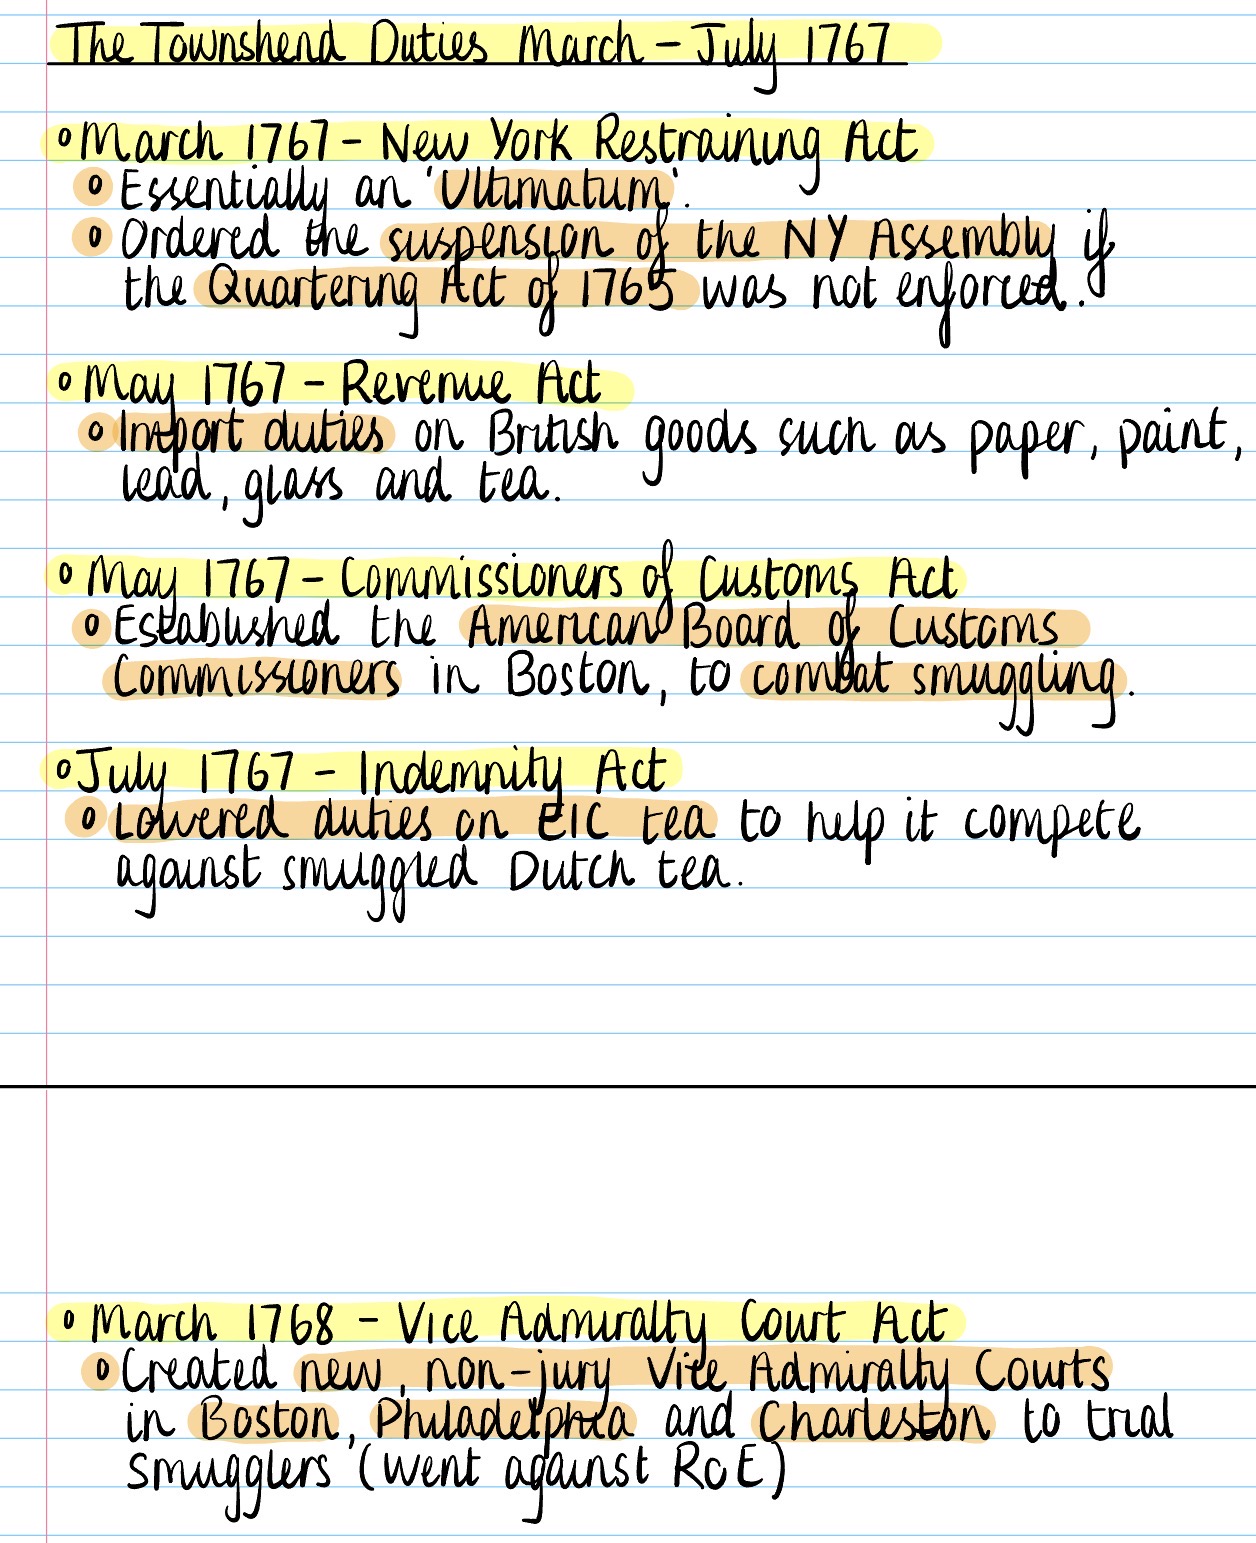 The Townshend Duties March - July 1767
March 1767 - New York Restraining Act
Essentially an 'Ultimatum'.
Ordered the suspension of the NY Assembly if
the Quartering Act of 1765 was not enforced.
May 1767 - Revenue Act
Import duties on British goods such as paper, paint,
lead, glass and tea.
May 1767 - Commissioners of Customs Act
Established the American Board of Customs
Commissioners in Boston, to combat smuggling.
July 1767 - Indemnity Act
Lowered duties on EIC tea to help it compete
against smuggled Dutch tea.
March 1768 - Vice Admiralty Court Act
Created new, non-jury Vice Admiralty Courts
in Boston, Philadelphia and Charleston to trial
smugglers (went against RoE)